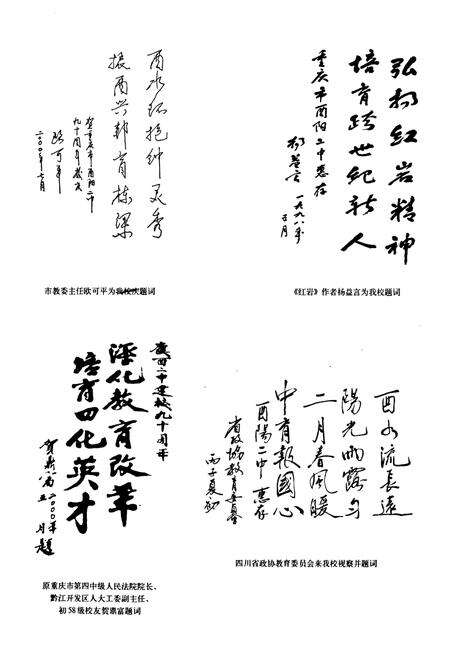 酉水环抱钟灵秀
振酉兴邦育栋梁
贺重庆市酉阳二中
九十周年校庆
欧可平
二〇〇〇年七月
市教委主任欧可平为我校庆题词
弘扬红岩精神
培育跨世纪新人
重庆市酉阳二中惠存
杨益言
一九九八年
五月
《红岩》作者杨益言为我校题词
庆酉二中建校九十周年
深化教育改革
培育四化英才
二〇〇〇年
月题
原重庆市第四中级人民法院院长、
黔江开发区人大工委副主任、
初58级校友贺鼎富题词
酉水流長遠
陽光雨露勻
二月春風暖
中育報國心
酉陽二中惠存
省政協教育委員會
丙子夏初
四川省政协教育委员会来我校视察并题词